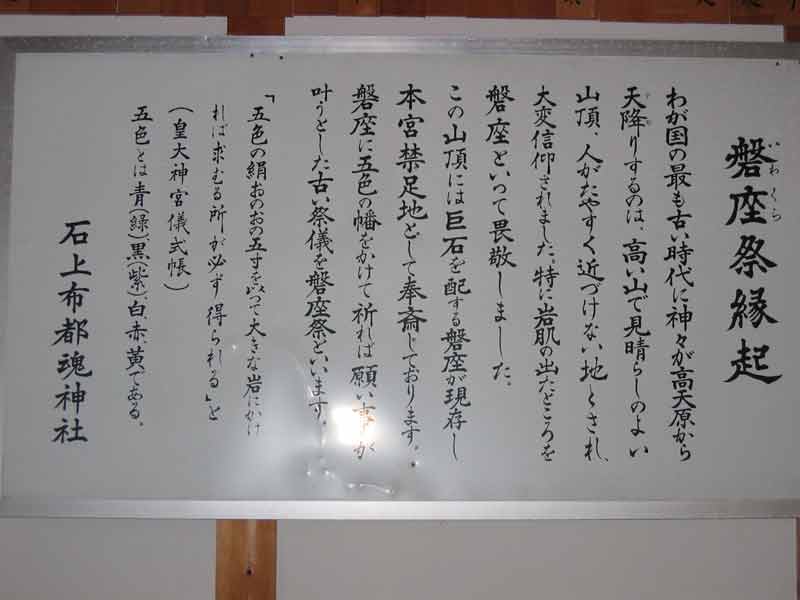 磐座祭縁起
いわくら
わが国の最も古い時代に神々が高天原から
天降りするのは、高い山で見晴らしのよい
山頂、人がたやすく近づけない地とされ、
大変信仰されました。特に岩肌の出たところを
磐座といって畏敬しました。
この山頂には巨石を配する磐座が現存し
本宮禁足地として奉斎しております。
磐座に五色の幡をかけて祈れば願い事が
叶うとした古い祭儀を磐座祭といいます。
「五色の絹おのおの五寸をもって大きな岩にかけ
れば求むる所が必ず得られる」と
(皇大神宮儀式帳)
五色とは青(緑)黒(紫)、白、赤、黄である。
石上布都魂神社